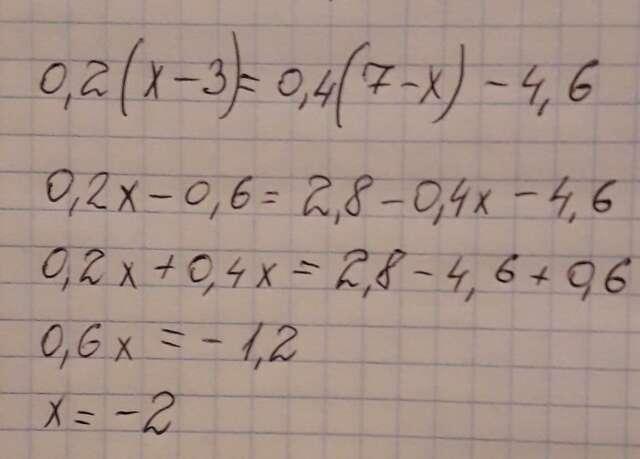 0,2(x-3)=0,4(7-x)-4,6
0,2x-0,6=2,8-0,4x-4,6
0,2x+0,4x=2,8-4,6+0,6
0,6x=-1,2
x=-2